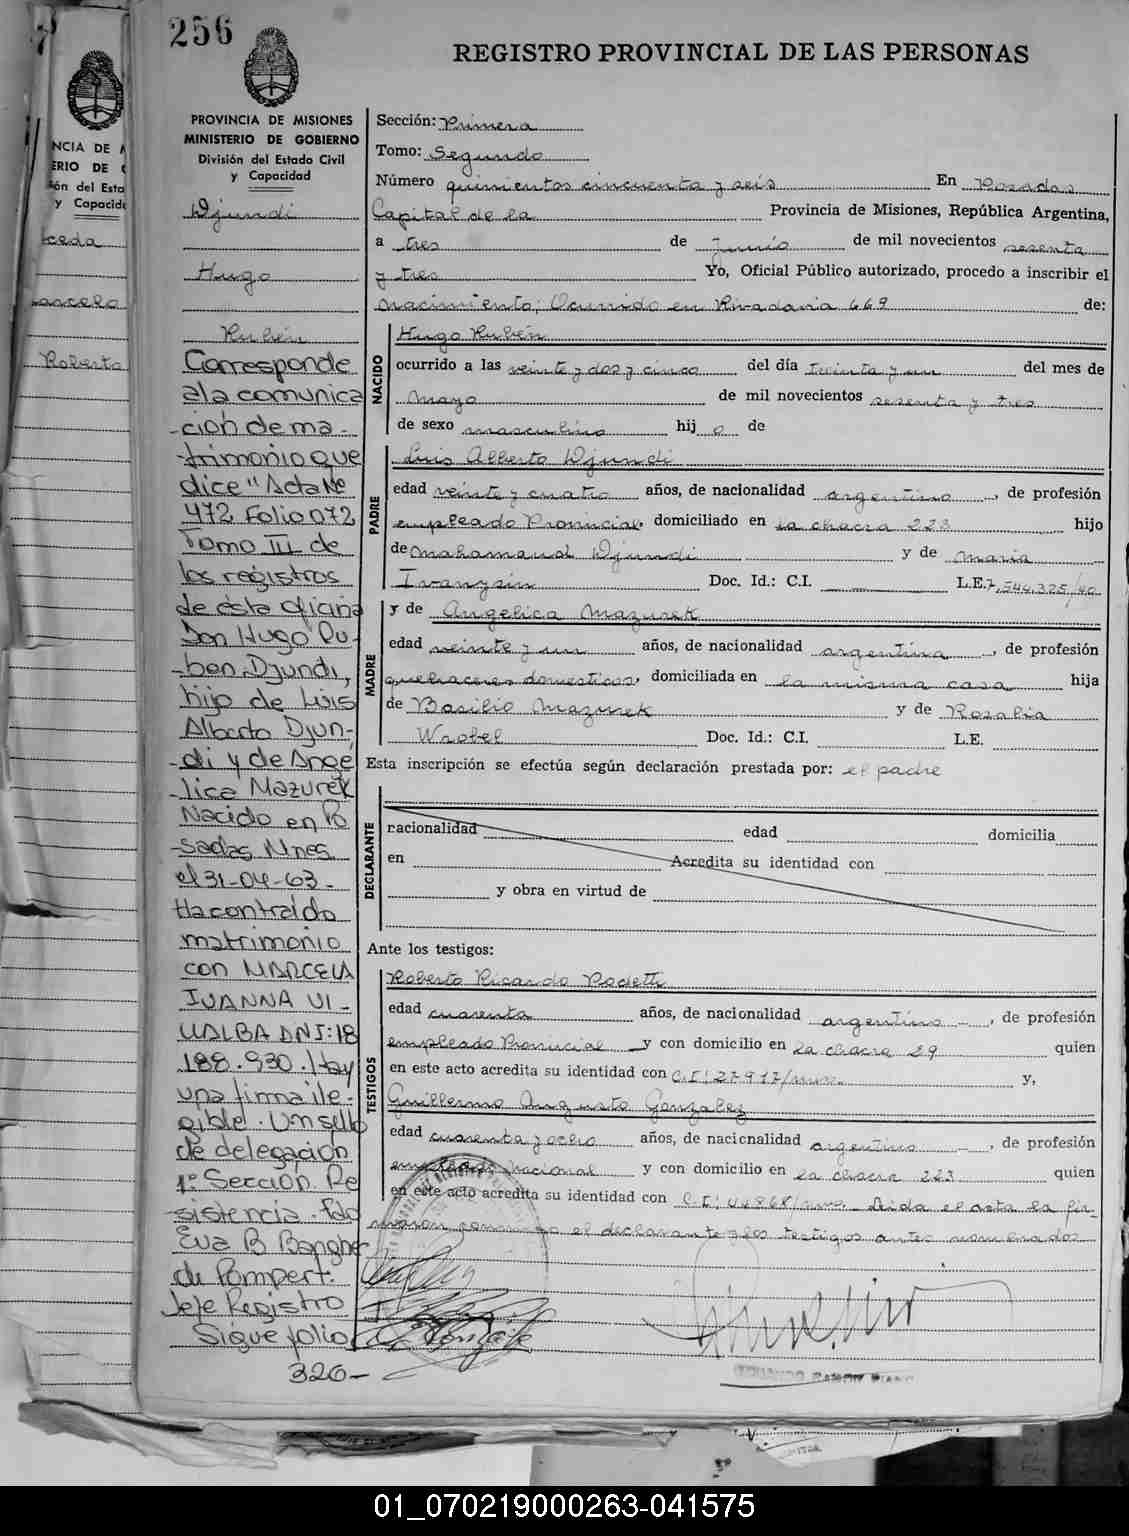 256
REGISTRO PROVINCIAL DE LAS PERSONAS
PROVINCIA DE MISIONES
MINISTERIO DE GOBIERNO
División del Estado Civil
y Capacidad
Djundi
Hugo
Rubén
Corresponde
a la comunica
-ción de ma-
trimonio que
dice "Acta Nº
472 Folio 072
Tomo III de
los registros
de ésta oficina
Don Hugo Ru-
ben Djundi,
hijo de Luis
Alberto Djun-
di y de Ange
lica Mazurek
Nacido en Po
sadas Mnes.
el 31-04-63-
Ha contraido
matrimonio
con MARCELA
IVANNA VI-
LLALBA DNI: 18
188.930. Hay
una firma ile-
gible. Un sello
de delegación
1º Sección. Re
sistencia. Fdo
Eva B
de Pompert.
Jefe Registro
Sigue folio
320-
Sección: Primera
Tomo: Segundo
Número quinientos cincuenta y seis En Posadas
Capital de la Provincia de Misiones, República Argentina,
a tres de Junio de mil novecientos sesenta
y tres Yo, Oficial Público autorizado, procedo a inscribir el
nacimiento; Ocurrido en Rivadavia 669 de:
NACIDO
Hugo Rubén
ocurrido a las veinte y dos y cinco del día treinta y un del mes de
Mayo de mil novecientos sesenta y tres
de sexo masculino hij o de
PADRE
Luis Alberto Djundi
edad veinte y cuatro años, de nacionalidad argentino, de profesión
empleado Provincial, domiciliado en la chacra 223 hijo
de Mahamaud Djundi y de Maria
Ivanysin Doc. Id.: C.I. L.E. 7.544.325/40
MADRE
y de Angélica Mazurek
edad veinte y un años, de nacionalidad argentina, de profesión
quehaceres domesticos, domiciliada en la misma casa hija
de Basilio Mazurek y de Rosalia
Wrobel Doc. Id.: C.I. L.E.
Esta inscripción se efectúa según declaración prestada por: el padre
DECLARANTE
nacionalidad edad domicilia
en Acredita su identidad con
y obra en virtud de
Ante los testigos:
TESTIGOS
Roberto Ricardo
edad cuarenta años, de nacionalidad argentino, de profesión
empleado Provincial y con domicilio en la chacra 29 quien
en este acto acredita su identidad con C.I: 27917/mnes. y,
Guillermo Augusto Gonzalez
edad cuarenta y ocho años, de nacionalidad argentino, de profesión
empleado Nacional y con domicilio en la chacra 223 quien
en este acto acredita su identidad con C.I: 44868/mnes. Leida el acta la fir
maron conmigo el declarante y los testigos antes nombrados
01_070219000263-041575